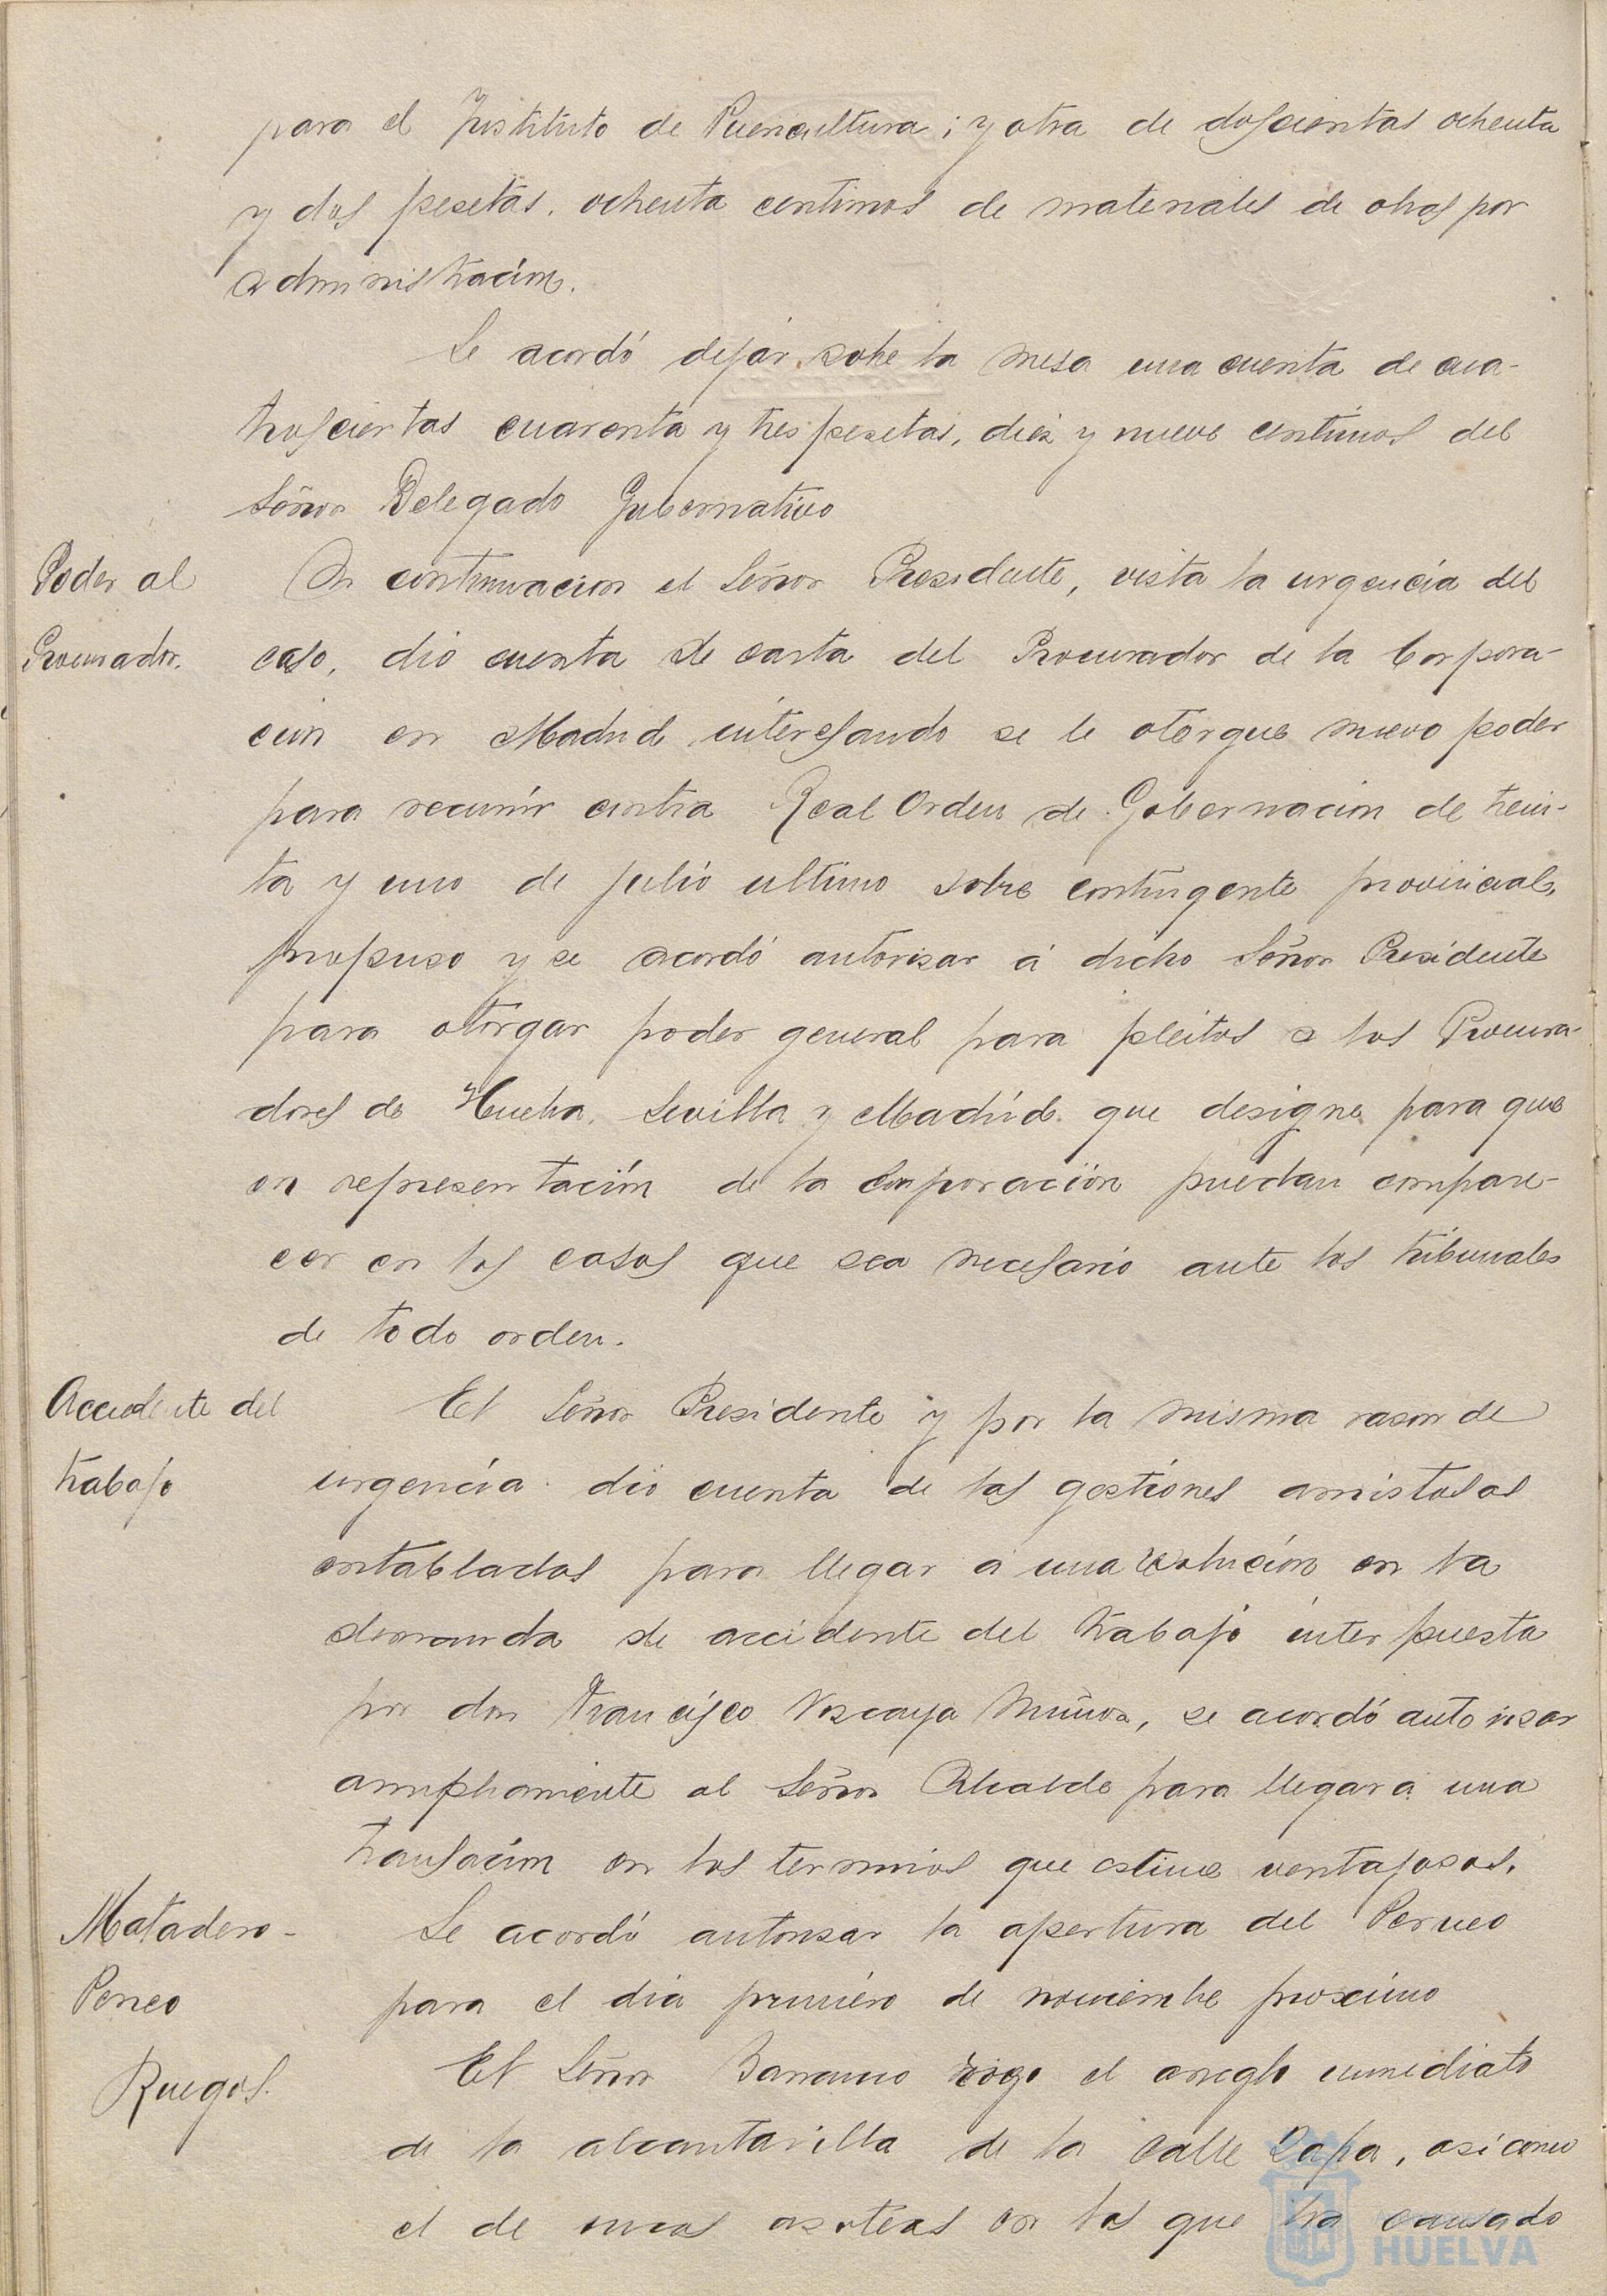 para el Instituto de Puericultura; y otra de doscientas ochenta
y dos pesetas, ochenta centimos de materiales de obras por
administración.
Se acordó dejar sobre la mesa una cuenta de cua-
troscientas cuarenta y tres pesetas, diez y nueve centimos del
Señor Delegado Gubernativo
Poder al
Procurador.
A continuacion el Señor Presidente, vista la urgencia del
caso, dio cuenta de carta del Procurador de la Corpora-
cion en Madrid interesando se le otorgue nuevo poder
para recurrir contra Real Orden de Gobernacion de trein-
ta y uno de julio ultimo sobre contingente provincial,
propuso y se acordó autorisar á dicho Señor Presidente
para otorgar poder general para pleitos a los Procura-
dores de Huelva, Sevilla y Madrid que designe para que
en representación de la Corporación puedan compare-
cer en los casos que sea necesario ante los tribunales
de todo orden.
Accidente del
trabajo
El Señor Presidente y por la misma rason de
urgencia dio cuenta de las gestiones amistosas
entabladas para llegar á una solución en la
demanda de accidente del trabajo interpuesta
por don Francisco Viscaya Muñoz, se acordó autorisar
ampliamente al Señor Alcalde para llegar a una
transación en los terminos que estime ventajosos.
Matadero-
Perneo
Se acordó autorisar la apertura del Perneo
para el dia primero de noviembre proximo
Ruegos.
El Señor Barranco rogo el arreglo inmediato
de la alcantarilla de la calle Rapa, asi como
el de unas asoteas en las que ha causado
HUELVA